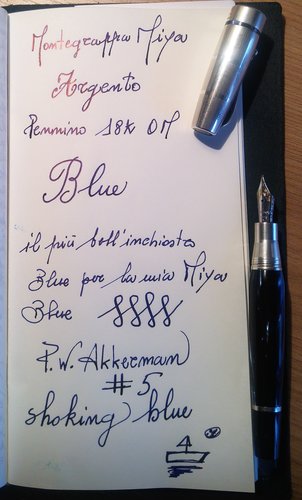 Montegrappa Miya
Argento
Pennino 18k OM
Blue
il più bell'inchiostro
Blue per la mia Miya
Blue
P.W. Akkerman
#5
shoking blue